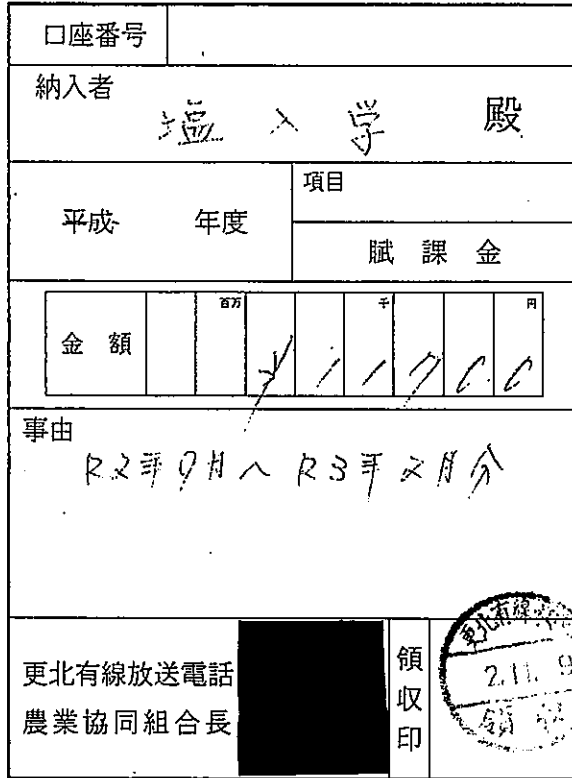 口座番号
納入者
塩入学 殿
平成 年度
項目
賦課金
百万 千 円
金額 ¥11700
事由
R2年9月〜R3年2月分
更北有線放送電話
農業協同組合長
領収印
更北有線
2.11.9
領収